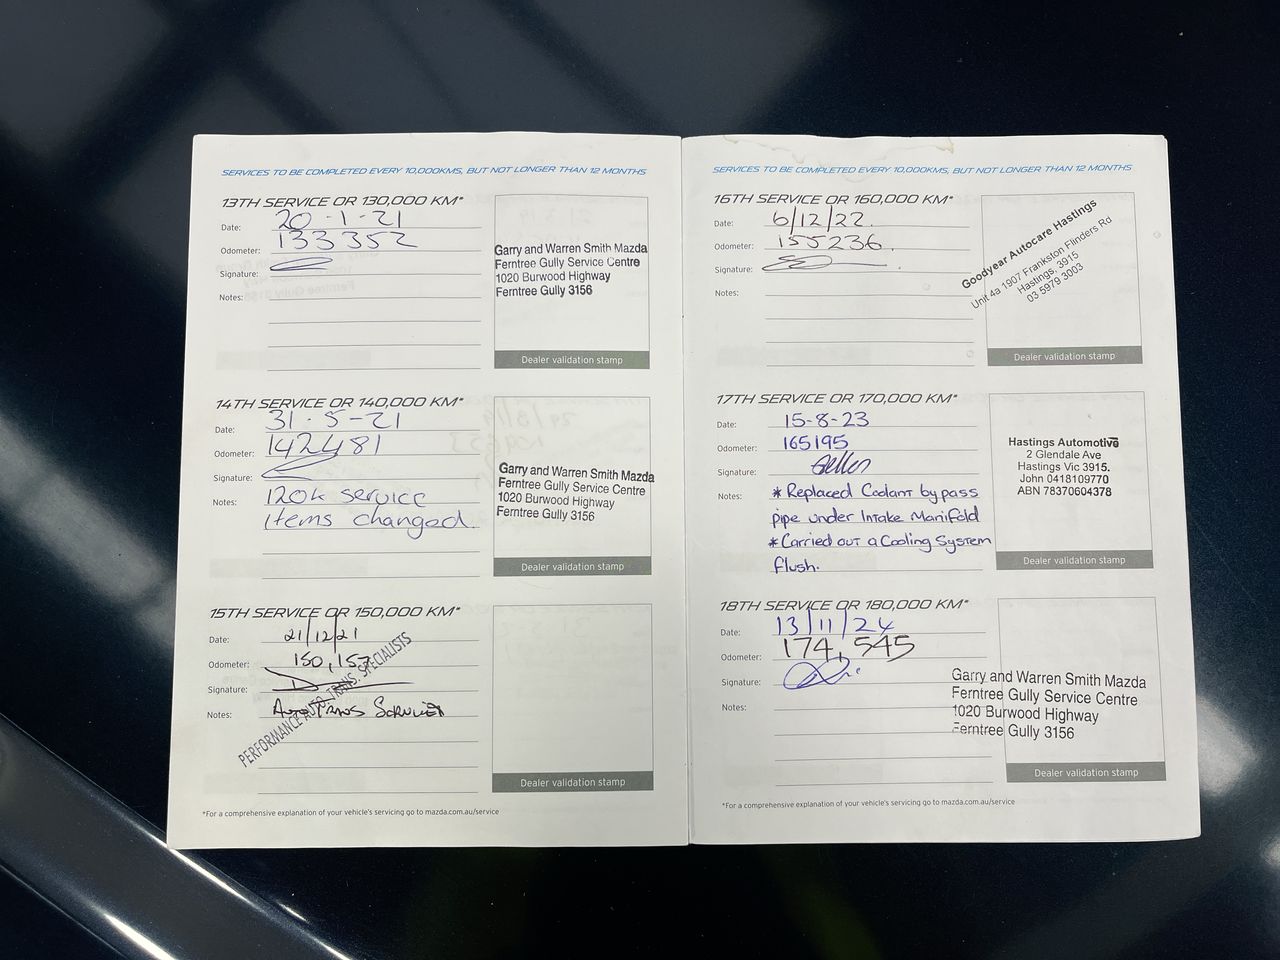 SERVICES TO BE COMPLETED EVERY 10,000KMS, BUT NOT LONGER THAN 12 MONTHS
13TH SERVICE OR 130,000 KM*
Date: 20-1-21
Odometer: 133352
Signature:
Notes:
Garry and Warren Smith Mazda
Ferntree Gully Service Centre
1020 Burwood Highway
Ferntree Gully 3156
Dealer validation stamp
14TH SERVICE OR 140,000 KM*
Date: 31-5-21
Odometer: 142481
Signature:
Notes: 120k service
items changed.
Garry and Warren Smith Mazda
Ferntree Gully Service Centre
1020 Burwood Highway
Ferntree Gully 3156
Dealer validation stamp
15TH SERVICE OR 150,000 KM*
Date: 21/12/21
Odometer: 150,157
Signature:
Notes: Auto Trans Service
PERFORMANCE AUTO TRANS. SPECIALISTS
Dealer validation stamp
*For a comprehensive explanation of your vehicle's servicing go to mazda.com.au/service
SERVICES TO BE COMPLETED EVERY 10,000KMS, BUT NOT LONGER THAN 12 MONTHS
16TH SERVICE OR 160,000 KM*
Date: 6/12/22.
Odometer: 155236.
Signature:
Notes:
Goodyear Autocare Hastings
Unit 4a 1907 Frankston Flinders Rd
Hastings, 3915
03 5979 3003
Dealer validation stamp
17TH SERVICE OR 170,000 KM*
Date: 15-8-23
Odometer: 165195
Signature:
Notes: * Replaced Coolant bypass
pipe under Intake Manifold
* Carried out a Cooling System
flush.
Hastings Automotive
2 Glendale Ave
Hastings Vic 3915.
John 0418109770
ABN 78370604378
Dealer validation stamp
18TH SERVICE OR 180,000 KM*
Date: 13/11/24
Odometer: 174,545
Signature:
Notes:
Garry and Warren Smith Mazda
Ferntree Gully Service Centre
1020 Burwood Highway
Ferntree Gully 3156
Dealer validation stamp
*For a comprehensive explanation of your vehicle's servicing go to mazda.com.au/service